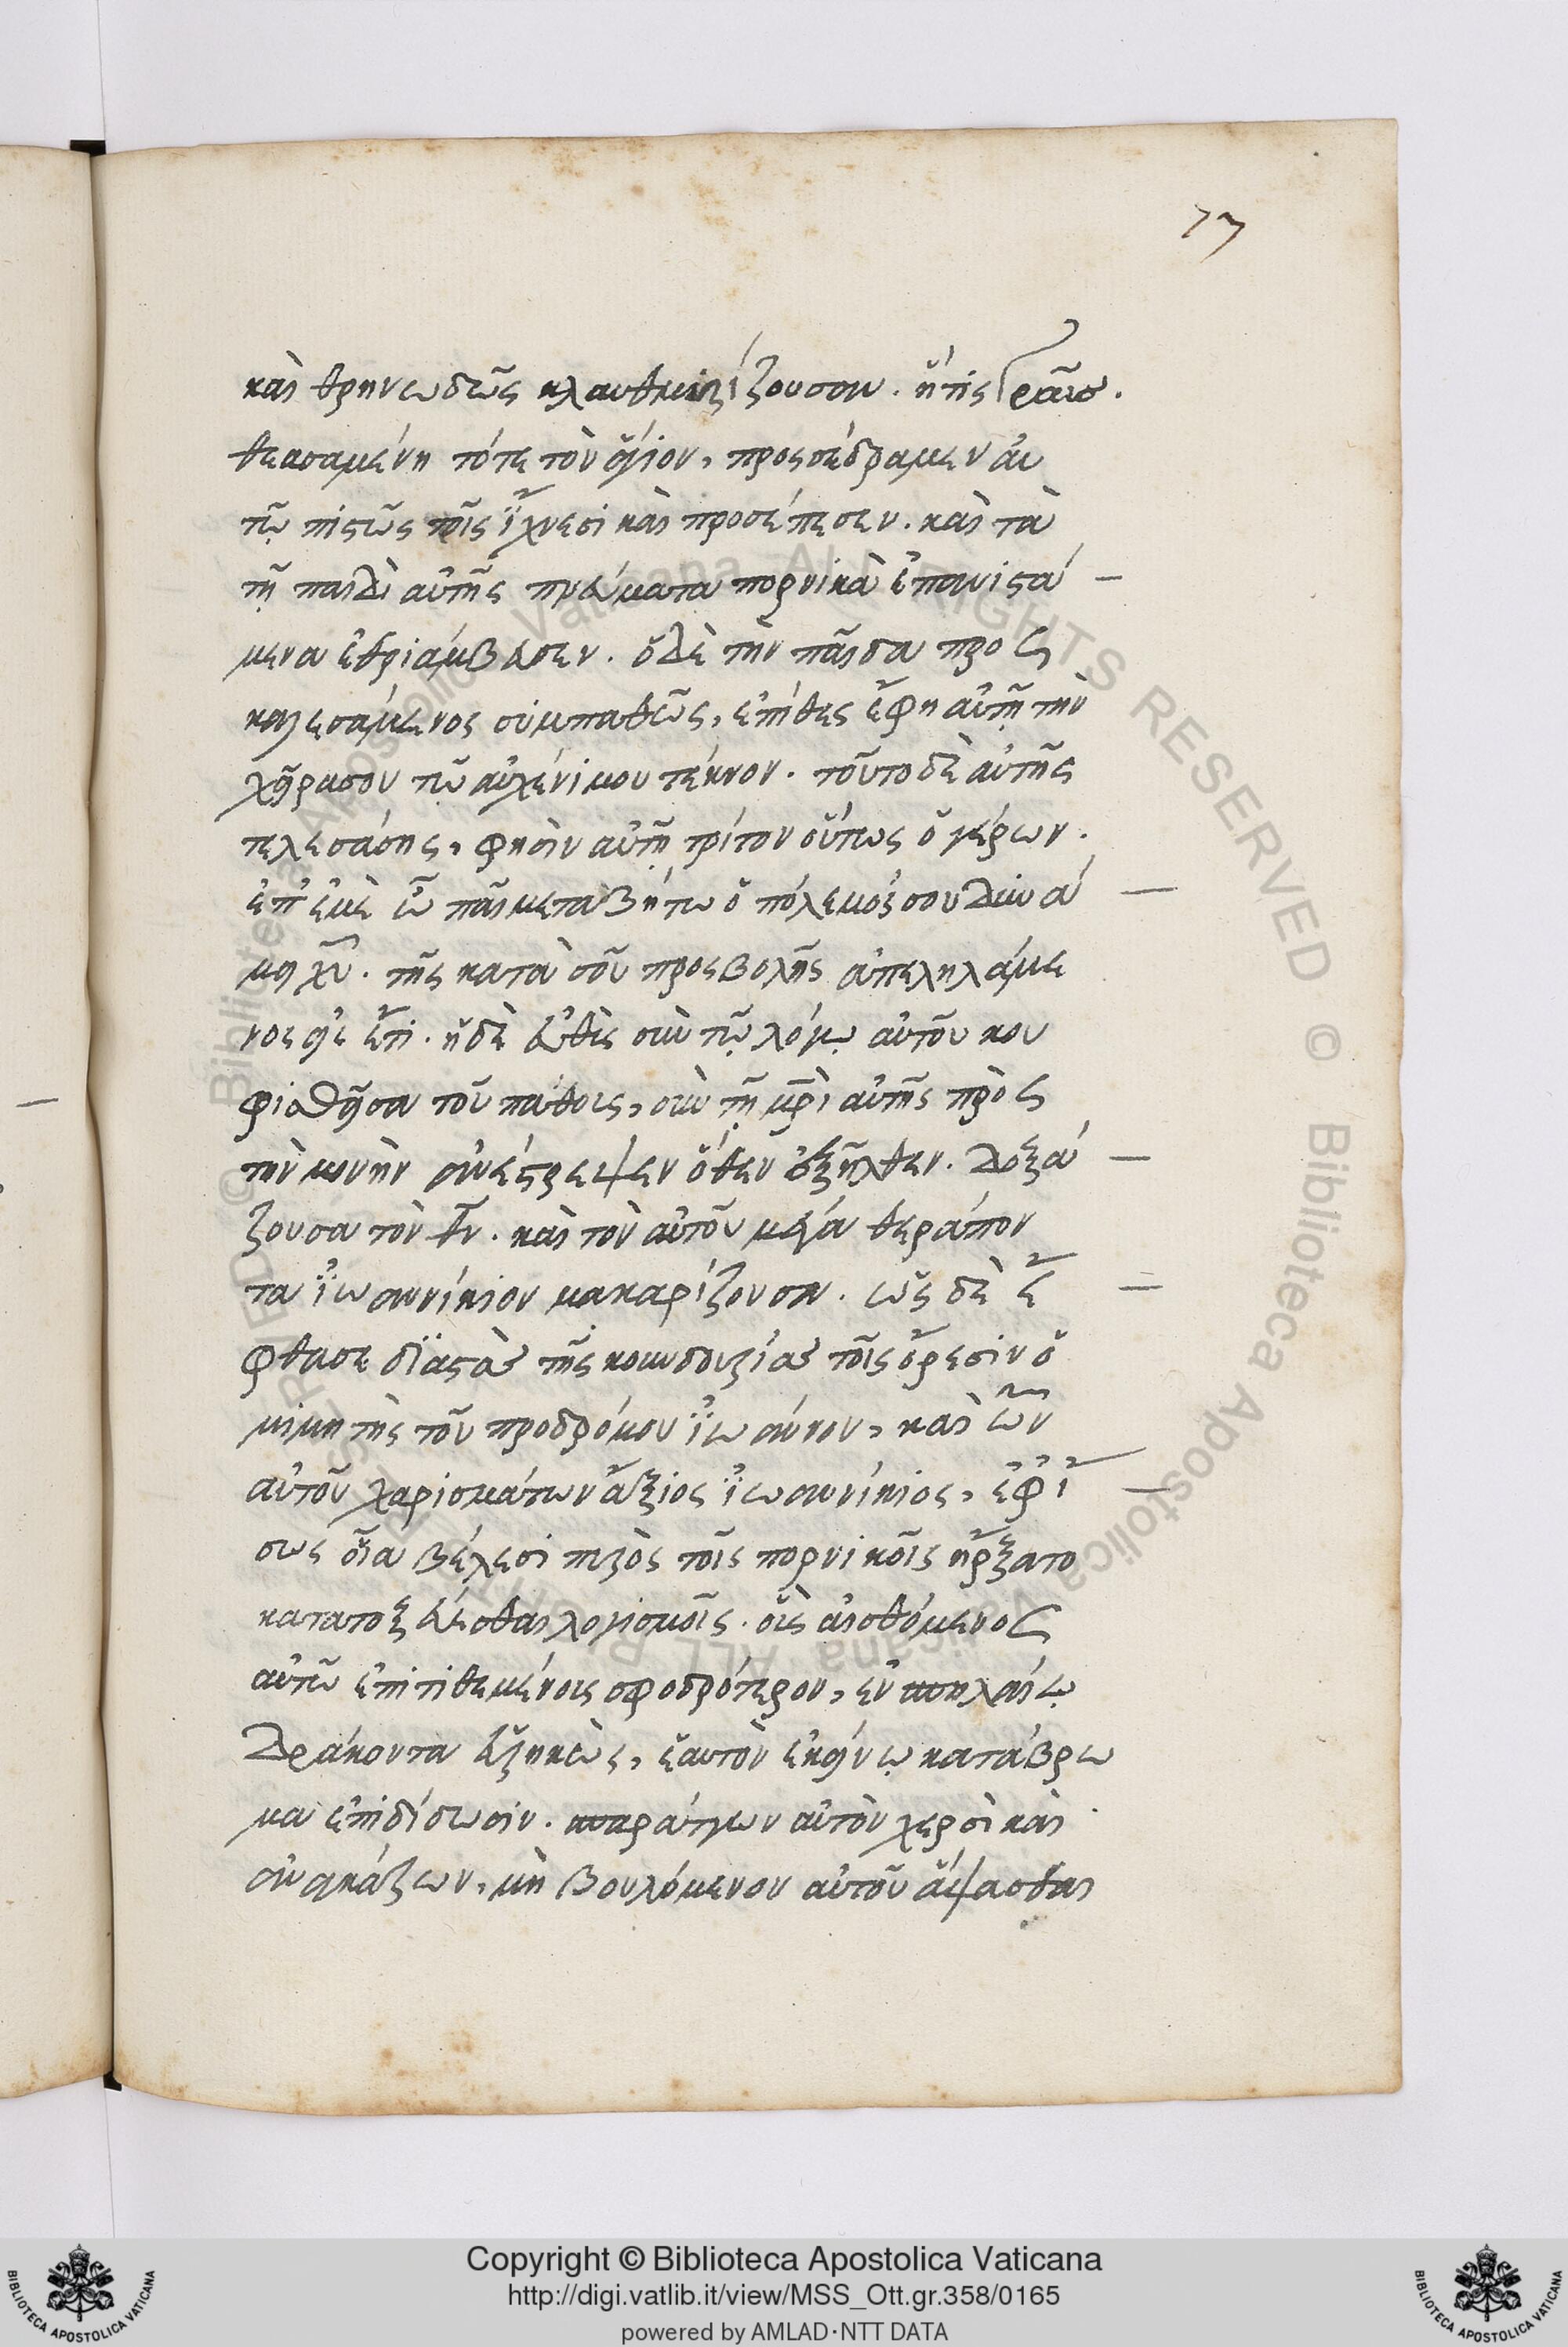 77
καὶ θρηνωδῶς κλαυθμιρίζουσαν. ἥτις
θεασαμένη τότε τὸν ἅγιον, προσέδραμεν αὐ
τῷ πιστῶς τοῖς ἴχνεσι καὶ προσέπεσεν. καὶ τὰ
τῇ παιδὶ αὐτῆς πνεύματα πορνικὰ ἐπανιστά
μενα ἐθριάμβευσεν. ὁ δὲ τὴν παῖδα προς
καλεσάμενος συμπαθῶς, ἐπίθες ἔφη αὐτῇ τὴν
χεῖρα σου τῷ αὐχένι μου τέκνον. τοῦτο δὲ αὐτῆς
τελεσάσης, φησὶν αὐτῇ τρίτον οὕτως ὁ γέρων.
ἐπ' ἐμὲ ὦ παῖ μεταβήτω ὁ πόλεμός σου δυνά
μει χῦ. τῆς κατὰ σοῦ προσβολῆς ἀπεληλαμέ
νος εἰς ἔτι. ἡ δὲ εὐθὺς σὺν τῷ λόγῳ αὐτοῦ κου
φισθεῖσα τοῦ πάθους, σὺν τῇ μρὶ αὐτῆς πρὸς
τὴν μονὴν ἀνέστρεψεν ὅθεν ἐξῆλθεν. δοξά
ζουσα τὸν θν. καὶ τὸν αὐτοῦ μέγα θεράπον
τα ἰωαννίκιον μακαρίζουσα. ὡς δὲ ἔ
φθασε διαστὰς τῆς κουνδουρίας τοῖς ὄρεσιν ὁ
μιμητὴς τοῦ προδρόμου ἰωάννου, καὶ ὢν
αὐτοῦ χαρισμάτων ἄξιος ἰωαννίκιος, ἐφί
σως οἷα βέλεσι πυρὸς τοῖς πορνικοῖς ἤρξατο
κατατοξεύεσθαι λογισμοῖς. οἷς αἰσθόμενος
αὐτῶ ἐπιτιθεμένοις σφοδρότερον, ἐν σπηλαίῳ
δράκοντα εὑρηκὼς, ἑαυτὸν ἐκείνῳ κατάβρω
μα ἐπιδίδωσιν. σπαράττων αὐτὸν χερσὶ καὶ
ἀναγκάζων, μὴ βουλόμενον αὐτοῦ ἅψασθαι
Copyright © Biblioteca Apostolica Vaticana
http://digi.vatlib.it/view/MSS_Ott.gr.358/0165
powered by AMLAD·NTT DATA